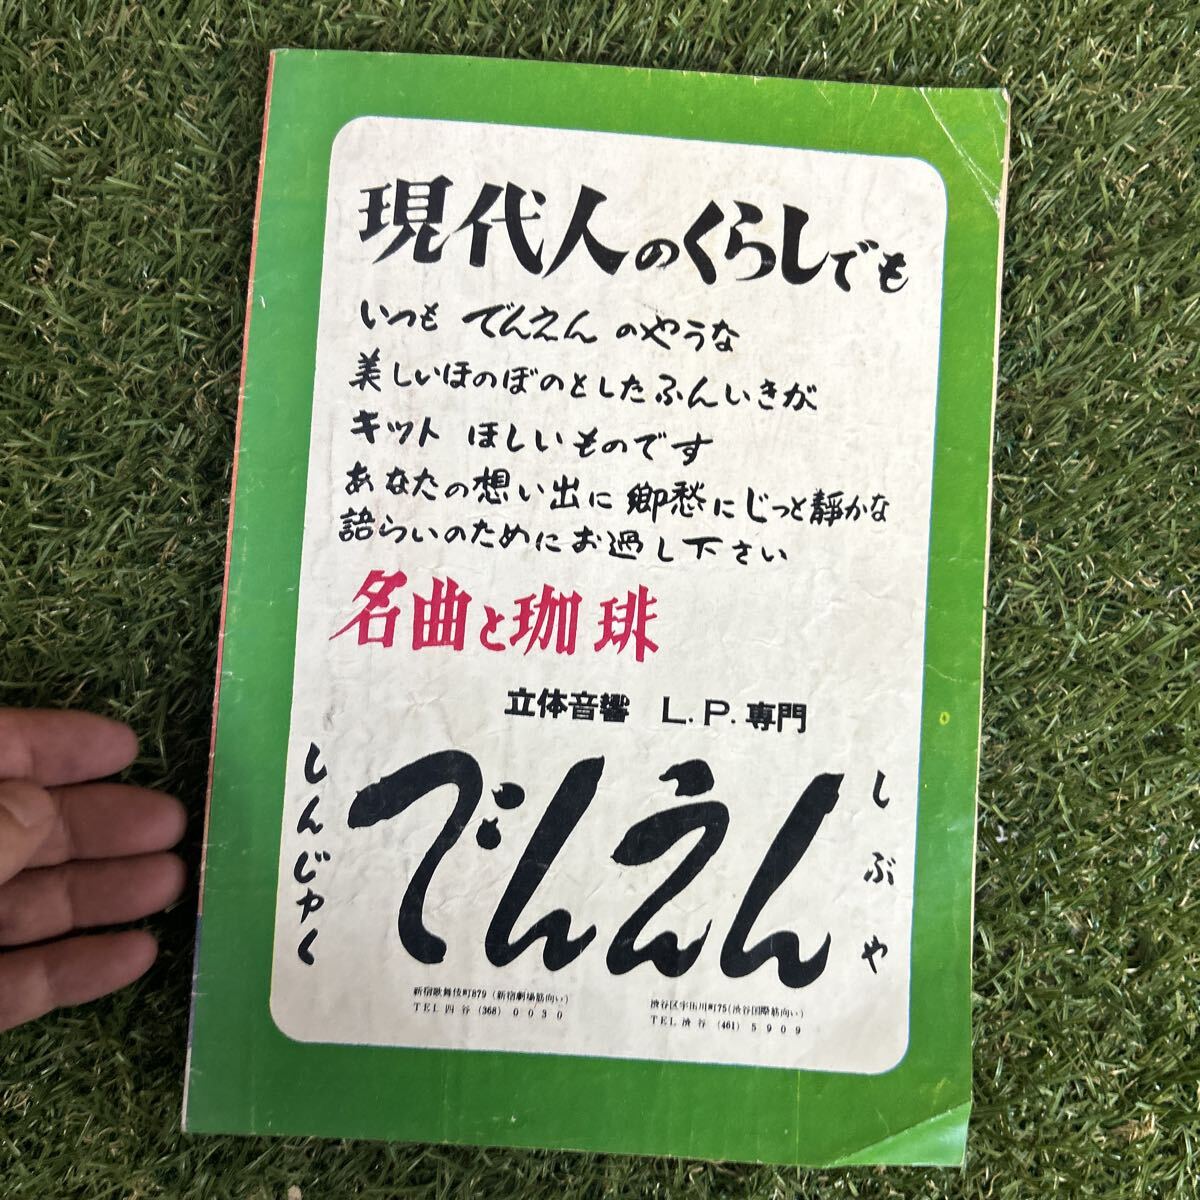 現代人のくらしでも
いつも でんえん のやうな
美しいほのぼのとしたふんいきが
キット ほしいものです
あなたの想い出に 郷愁にじっと靜かな
語らいのためにお過し下さい
名曲と珈琲
立体音響 L.P.専門
しんじゅく
でんえん
しぶや
新宿歌舞伎町879 (新宿劇場筋向い)
TEL 四谷 (368) 0030
渋谷区宇田川町75(渋谷国際筋向い)
TEL 渋谷 (461) 5909